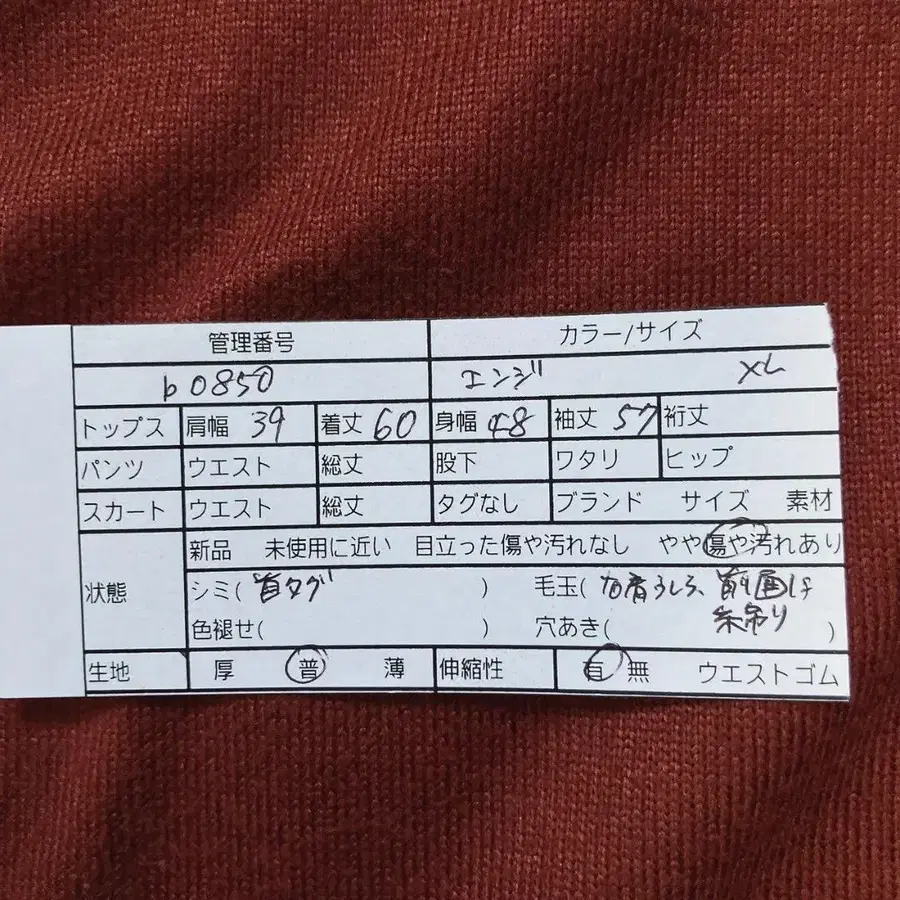 管理番号 カラー/サイズ
b0850 エンジ XL
トップス 肩幅 39 着丈 60 身幅 48 袖丈 57 裄丈
パンツ ウエスト 総丈 股下 ワタリ ヒップ
スカート ウエスト 総丈 タグなし ブランド サイズ 素材
新品 未使用に近い 目立った傷や汚れなし やや傷や汚れあり
状態 シミ( 首タグ ) 毛玉( 右肩うしろ、前面は
色褪せ( ) 穴あき( 糸吊り )
生地 厚 普 薄 伸縮性 有 無 ウエストゴム